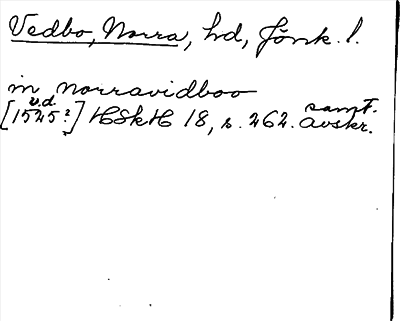 Vedbo, Norra, hd, Jönk. l.
in norravidboo
[1525?] u.d. HSkH 18, s. 262. samt. avskr.